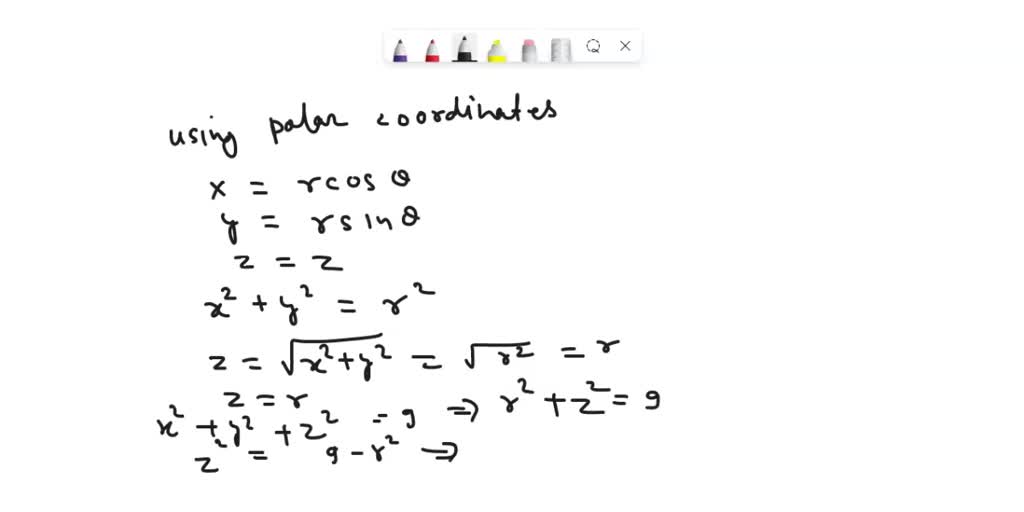 using polar coordinates
x = r cos θ
y = r sin θ
z = z
x² + y² = r²
z = √(x²+y²) = √(r²) = r
z = r
x² + y² + z² = 9 ⇒ r² + z² = 9
z² = 9 - r² ⇒